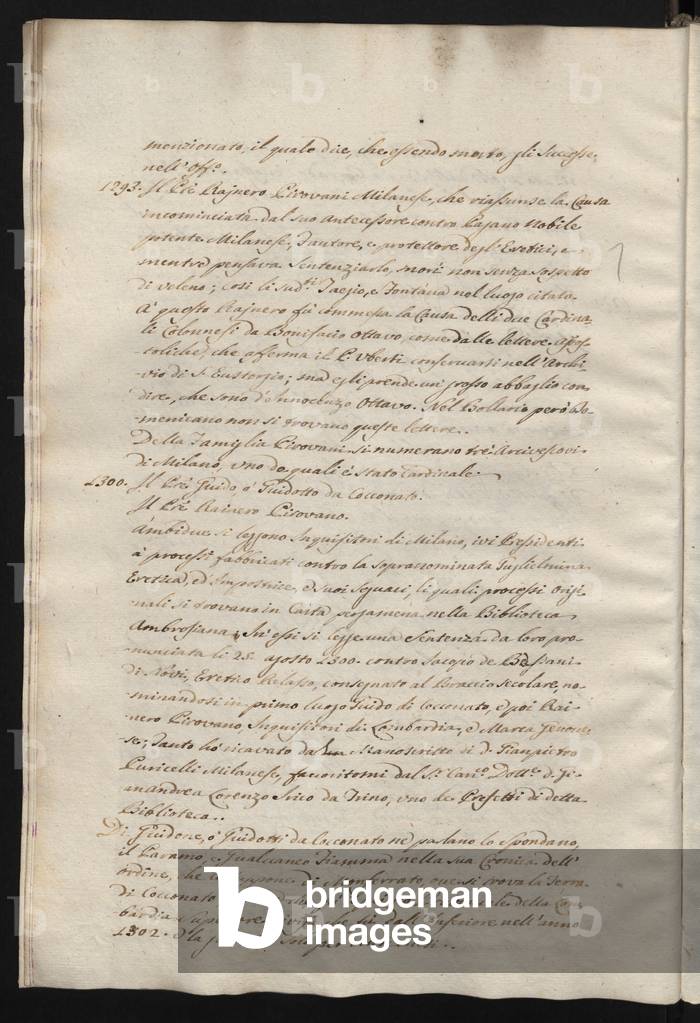 menzionato, il quale dice, che essendo morto, gli successe
nell' Off.º
1293. Il Pre Rajnero Pirovani Milanese, che riassunse la Causa
incominciata dal suo Antecessore contro Pagano Nobile
potente Milanese, Fautore, e protettore degl' Eretici, e
mentre pensava Sentenziarlo, morì non senza sospetto
di veleno; così li sud.ti Taegio, e Fontana nel luogo citato.
A questo Rajnero fù commessa la Causa delli due Cardina-
li Colonnesi da Bonifacio Ottavo, come dalle lettere Apos-
toliche, che afferma il P. Uberti conservarsi nell' Archi-
-vio di S. Eustorgio; mà egli prende un grosso abbaglio con
dire, che sono d'Innocenzo Ottavo. Nel Bollario però Do-
-menicano non si trovano queste lettere..
Della Famiglia Pirovani si numerano trè Arcivescovi
di Milano, uno de quali è stato Cardinale.
1300. Il Pre Guido, ò Guidotto da Cocconato.
Il Pre Rainero Pirovano.
Ambidue si leggono Inquisitori di Milano, ivi Presidenti
à processi fabbricati contro la sopranominata Guglielmina
Eretica, ed Impostrice, e suoi seguaci, li quali processi origi-
nali si trovano in Carta pergamena nella Biblioteca
Ambrosiana; In essi si legge una Sentenza da loro pro-
-nunciata li 25 agosto 1300. contro Jacopo de
di Novi, Eretico Relasso, consegnato al Braccio secolare, no-
minandosi in primo luogo Guido di Cocconato, e poi Rai-
nero Pirovano Inquisitori di Lombardia, e Marca Genove-
se; Tanto hò ricavato da un Manoscritto di D. Gianpietro
Puricelli Milanese, favoritomi dal Sr. Can.co Dott.e D. Gi-
anandrea Lorenzo Irico da Trino, uno de Prefetti di detta
Biblioteca..
Di Guidone, ò Guidotti da Cocconato ne parlano lo Spondano,
il Paramo, e Gualvaneo Fiamma nella sua Cronica dell'
ordine, che Monferrato ove si trova la Terra
di Cocconato della Lom-
bardia Superiore dall' Inferiore nell' anno
1302.
bridgeman
images